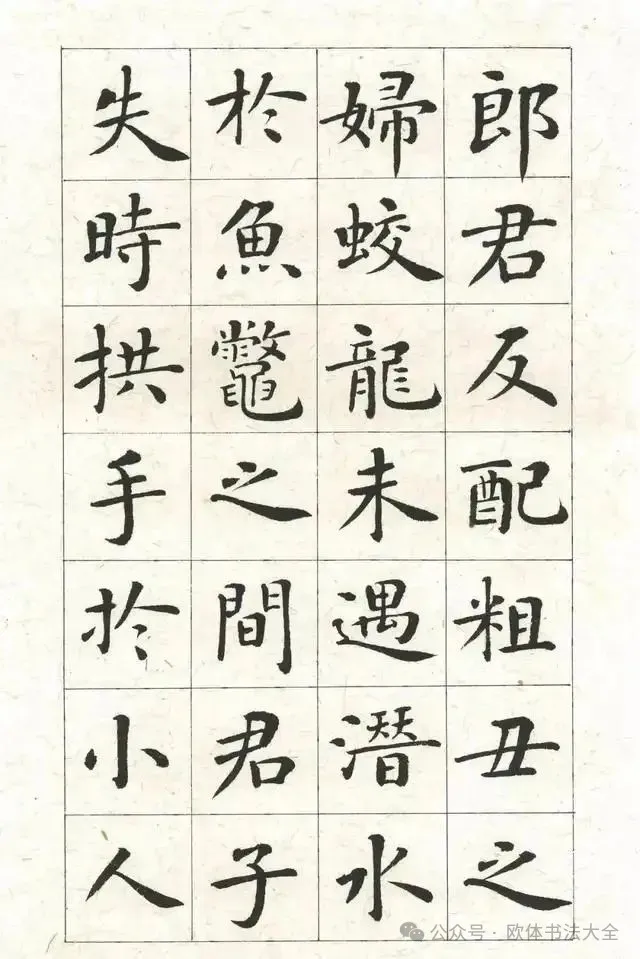 郎君反配粗丑之
婦蛟龍未遇潛水
於魚鼈之間君子
失時拱手於小人
公众号·欧体书法大全